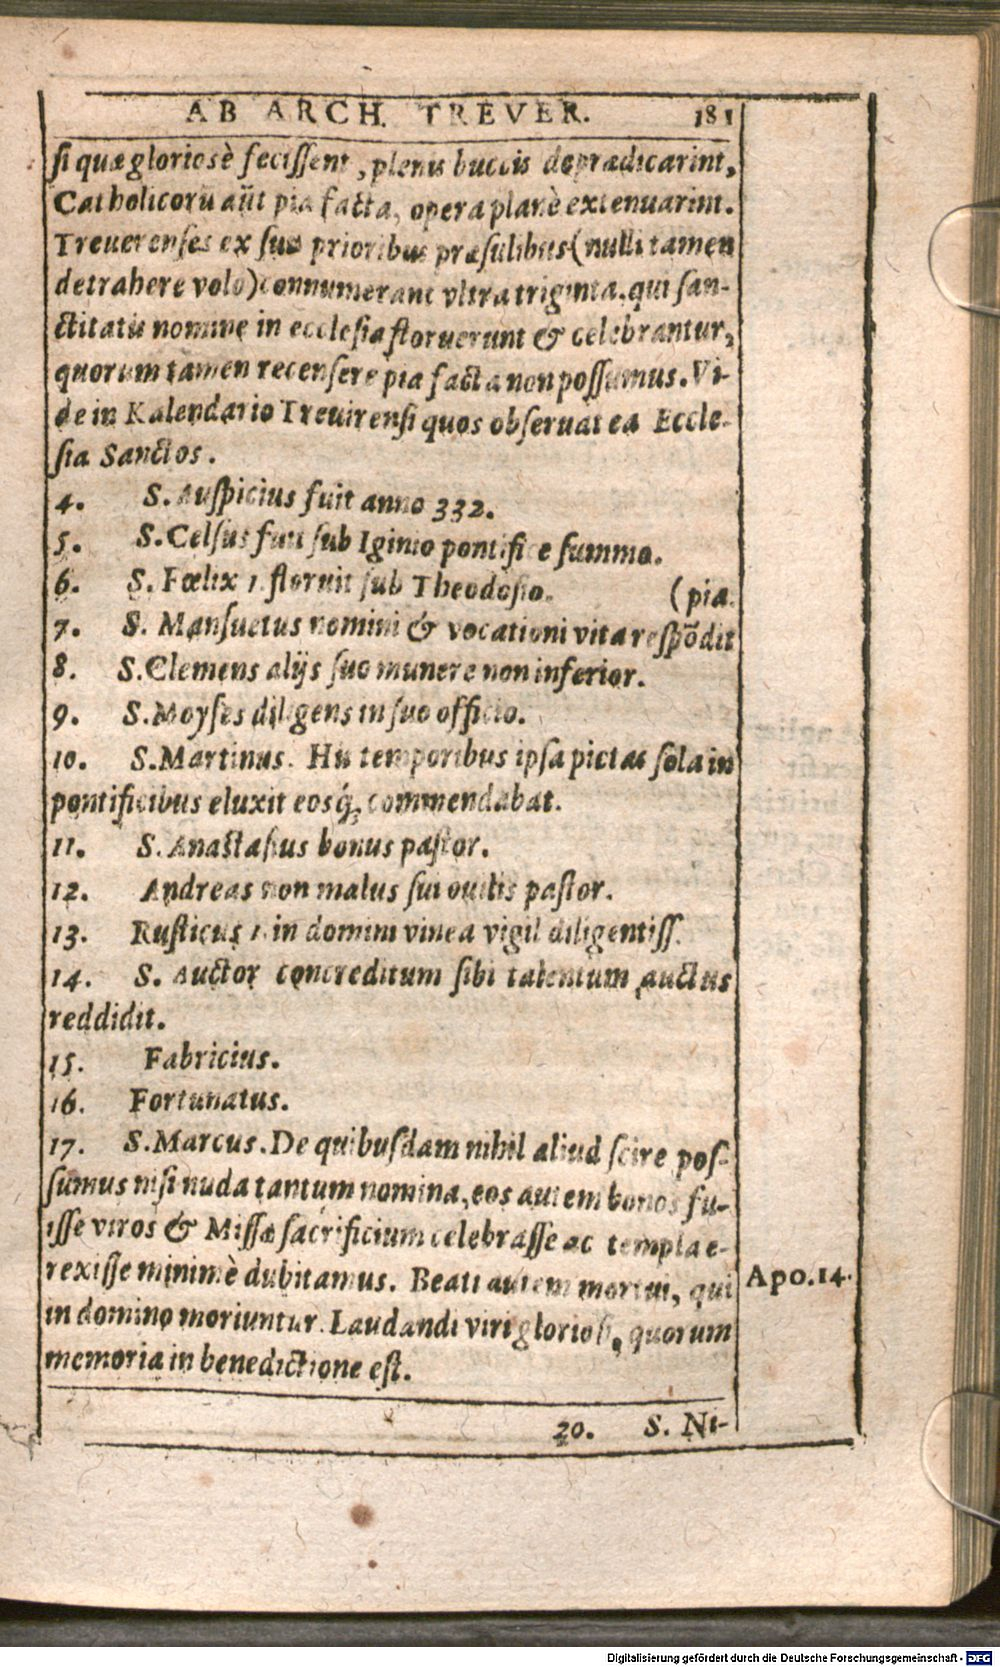 AB ARCH. TREVER. 181
si quæ gloriosè fecissent, plenis buccis depradicarint,
Catholicorū aūt pia facta, opera planè extenuarint.
Treuerenses ex suis prioribus præsulibus (nulli tamen
detrahere volo) connumerant vltra triginta, qui san-
ctitatis nomine in ecclesia floruerunt & celebrantur,
quorum tamen recensere pia facta non possumus. Vi-
de in Kalendario Treuirensi quos obseruat ea Eccle-
sia Sanctos.
4. S. Auspicius fuit anno 332.
5. S. Celsus fuit sub Iginio pontifice summo.
6. S. Fœlix 1. floruit sub Theodosio. (pia.
7. S. Mansuetus nomini & vocationi vita respōdit
8. S. Clemens alijs suo munere non inferior.
9. S. Moyses diligens in suo officio.
10. S. Martinus. His temporibus ipsa pietas sola in
pontificibus eluxit eosq́; commendabat.
11. S. Anastasius bonus pastor.
12. Andreas non malus sui ouilis pastor.
13. Rusticus 1. in domini vinea vigil diligentiss.
14. S. Auctor concreditum sibi talentum auctus
reddidit.
15. Fabricius.
16. Fortunatus.
17. S. Marcus. De quibusdam nihil aliud scire pos-
sumus nisi nuda tantum nomina, eos autem bonos fu-
isse viros & Missæ sacrificium celebrasse ac templa e-
rexisse minimè dubitamus. Beati autem mortui, qui
Apo. 14.
in domino moriuntur. Laudandi viri gloriosi, quorum
memoria in benedictione est.
20. S. Ni-
Digitalisierung gefördert durch die Deutsche Forschungsgemeinschaft - DFG